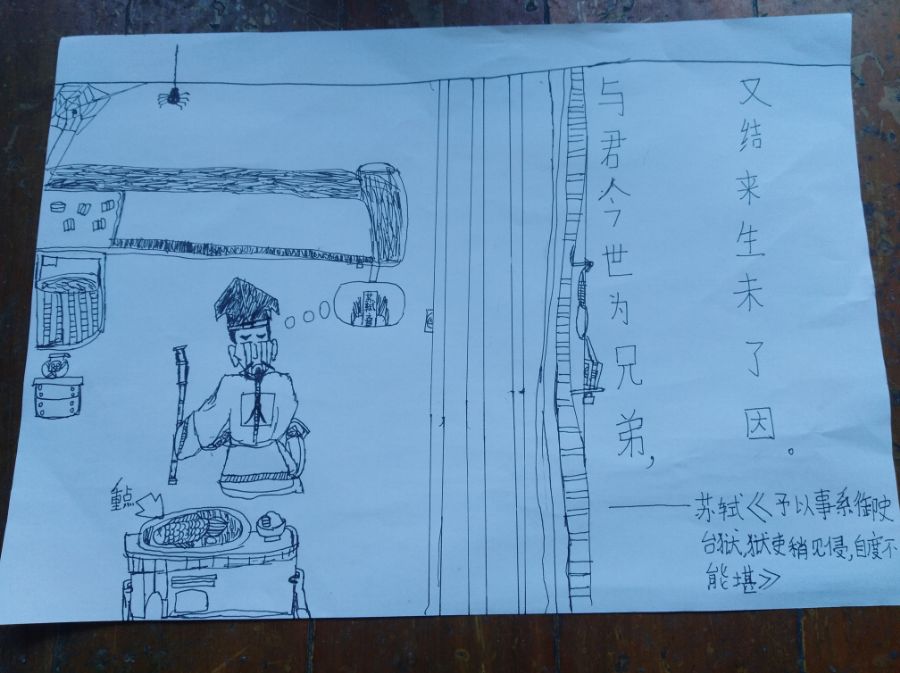 与君今世为兄弟,
又结来生未了因。
——苏轼《予以事系御史
台狱,狱吏稍见侵,自度不
能堪》
囚
重点